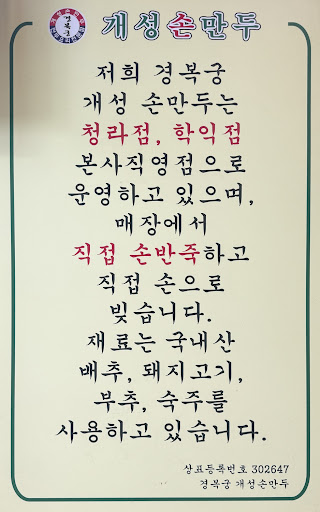 경복궁
개성손만두
저희 경복궁
개성 손만두는
청라점, 학익점
본사직영점으로
운영하고 있으며,
매장에서
직접 손반죽하고
직접 손으로
빚습니다.
재료는 국내산
배추, 돼지고기,
부추, 숙주를
사용하고 있습니다.
상표등록번호 302647
경복궁 개성손만두